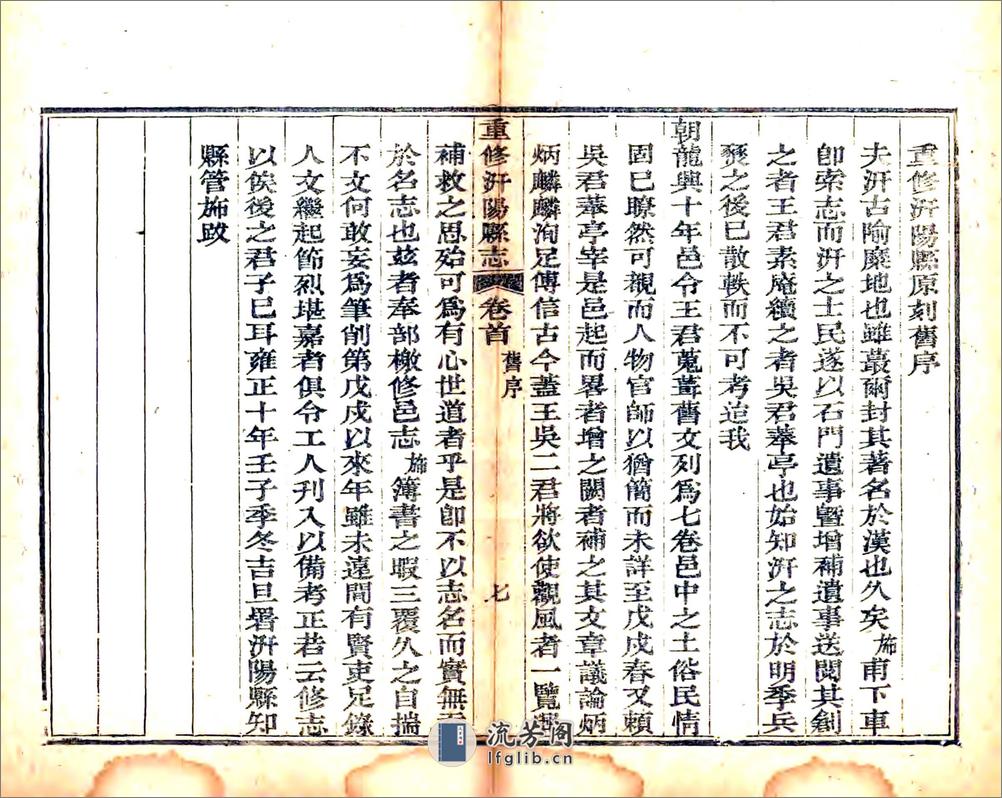 重修汧陽縣原刻舊序
夫汧古隃糜地也雖蕞爾封其著名於漢也久矣施甫下車
卽索志而汧之士民遂以石門遺事曁增補遺事送閱其創
之者王君素庵續之者吳君菶亭也始知汧之志於明季兵
燹之後已散軼而不可考迨我
朝龍興十年邑令王君蒐葺舊文列爲七卷邑中之土俗民情
固已瞭然可觀而人物官師以猶簡而未詳至戊戌春又頼
吳君菶亭宰是邑起而畧者增之闕者補之其文章議論炳
炳麟麟洵足傳信古今蓋王吳二君將欲使觀風者一覽
重修汧陽縣志 卷首 舊序 七
補救之思始可爲有心世道者乎是卽不以志名而實無
於名志也兹者奉部檄修邑志施簿書之暇三覆久之自揣
不文何敢妄爲筆削第戊戌以來年雖未遠間有賢吏足錄
人文繼起節烈堪嘉者俱令工人刊入以備考正若云修志
以俟後之君子已耳雍正十年壬子季冬吉旦署汧陽縣知
縣管施跋
流芳閣
lfglib.cn